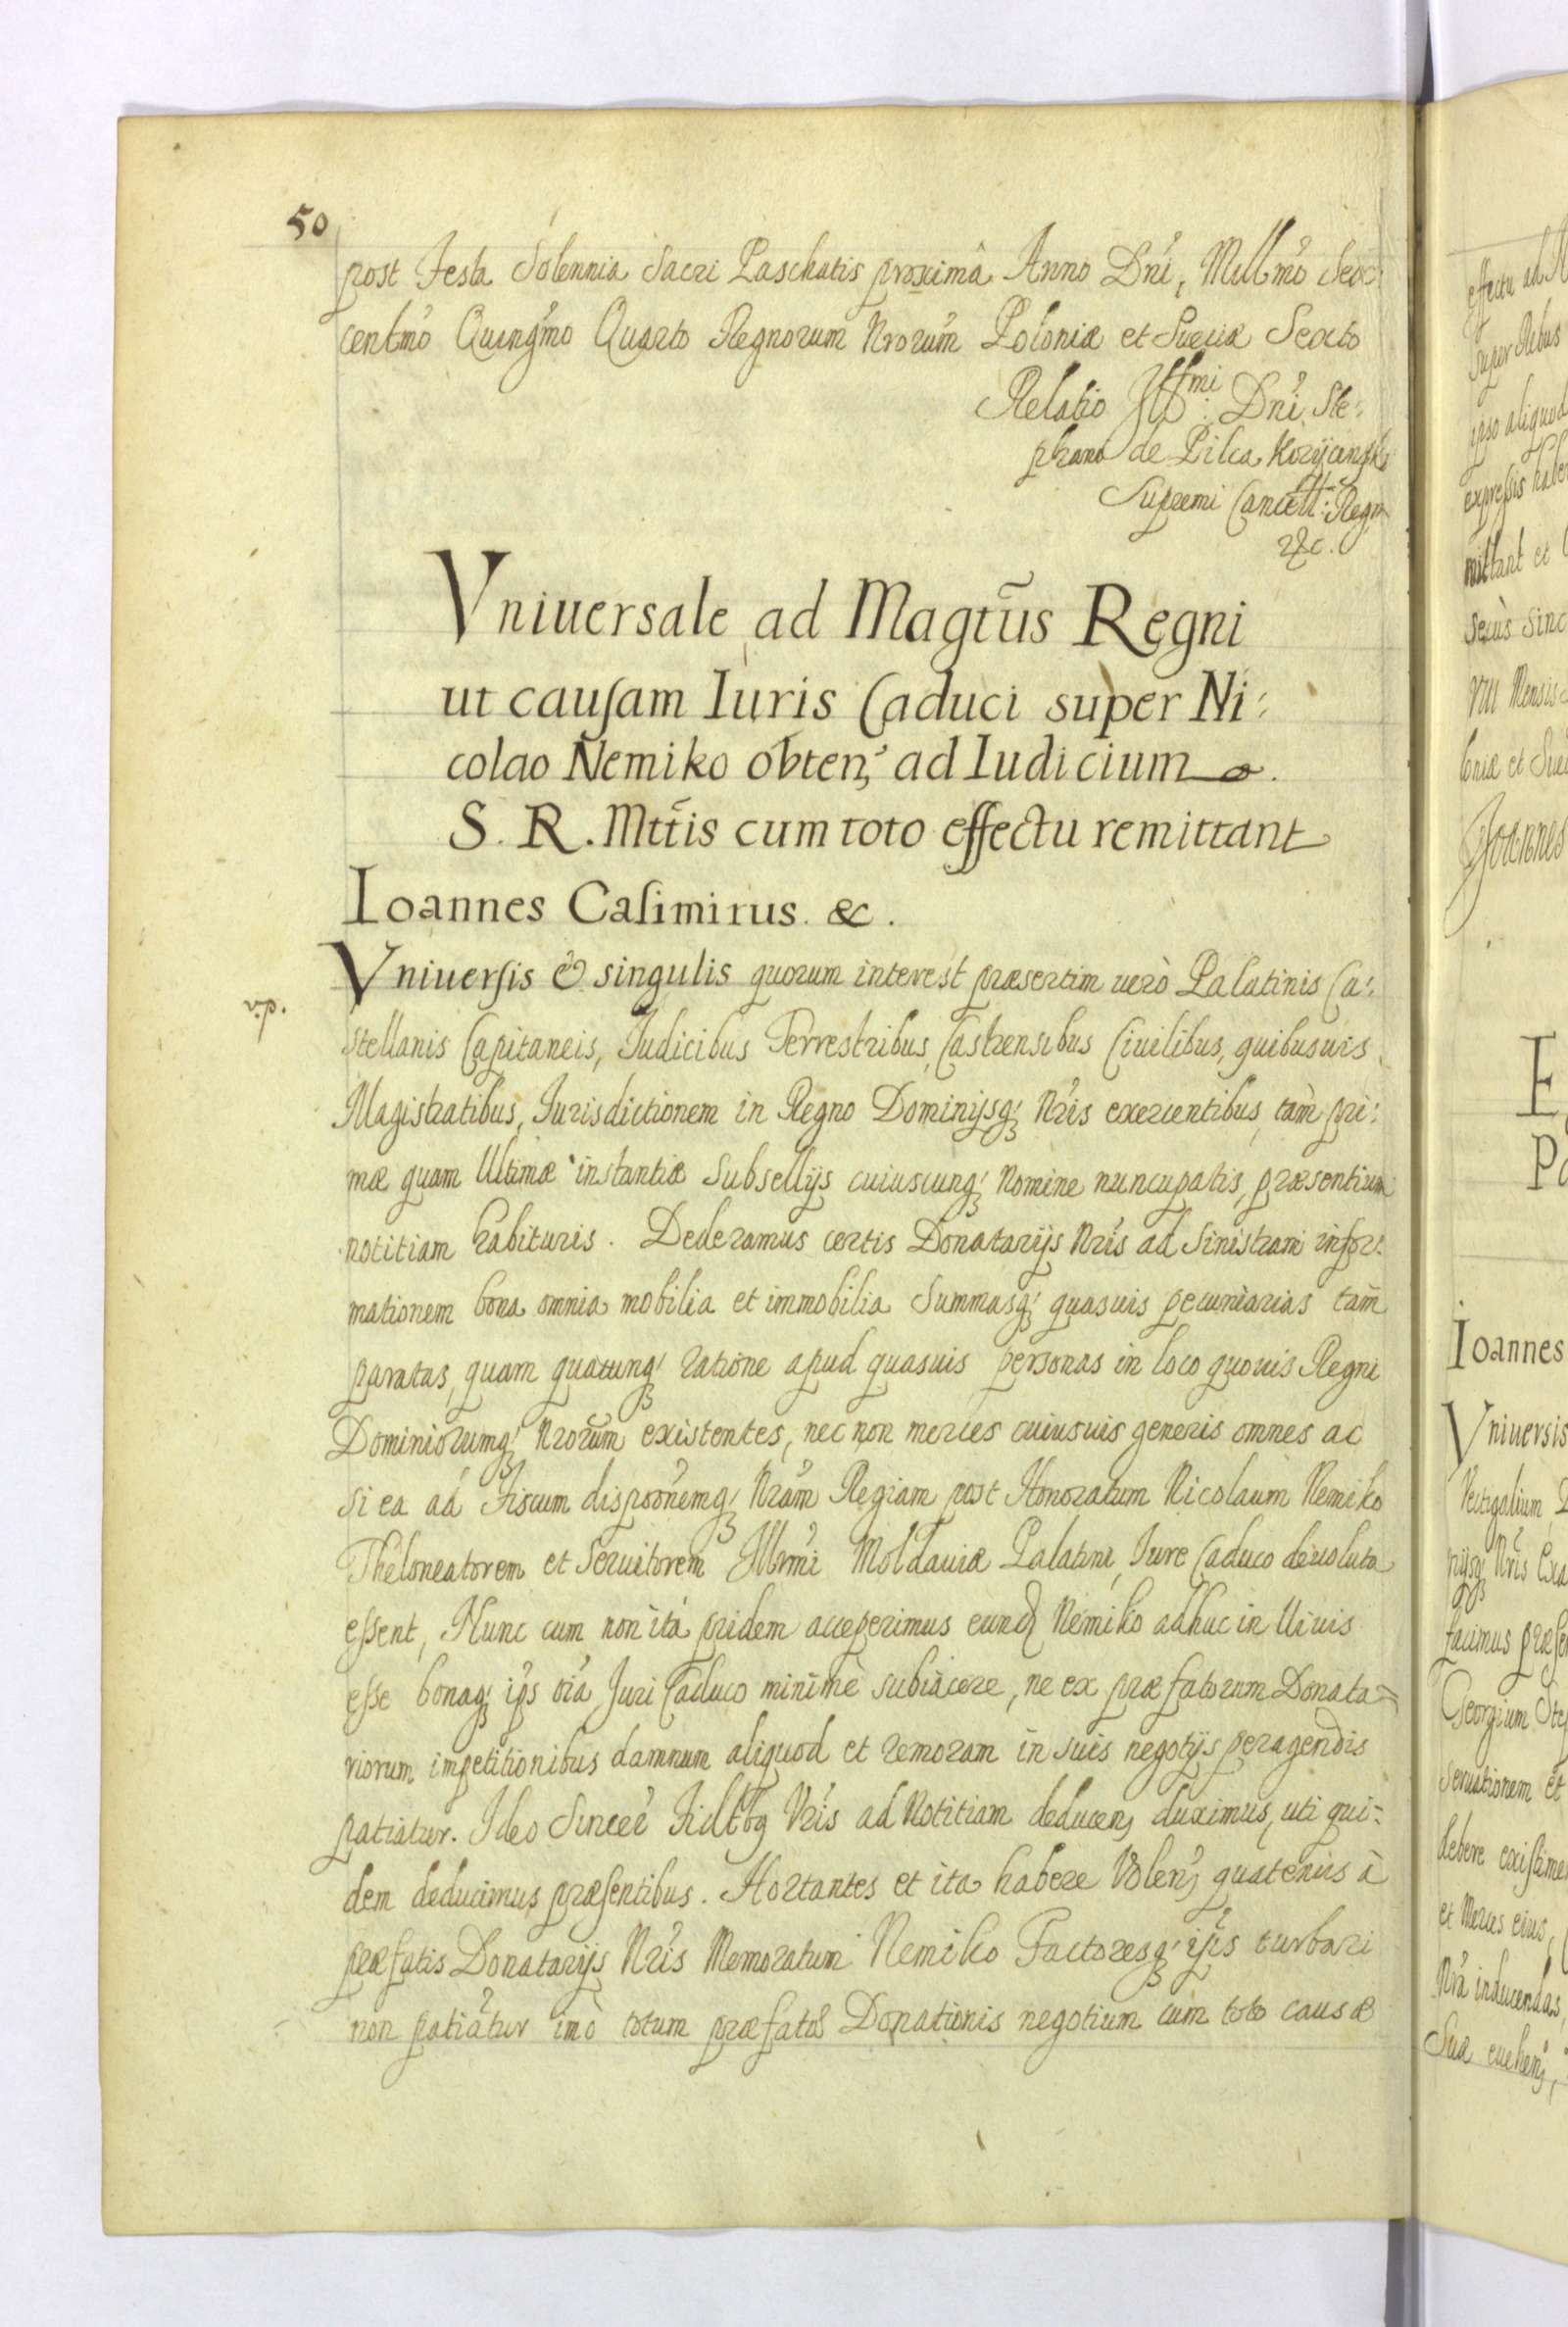 50
post Festa Solennia Sacri Paschatis proxima Anno Dni, Millmo Sex
centmo Quinqmo Quarto Regnorum Nrorum Poloniæ et Sueciæ Sexto
Relatio Illmi: Dni Ste:
phano de Pilca Koryciński
Supremi Cancell: Regni
&c.
Vniuersale ad Magtus Regni
ut causam Iuris Caduci super Ni:
colao Nemiko obten, ad Iudicium
S. R. Mttis cum toto effectu remittant
Ioannes Casimirus. &c.
Vniuersis & singulis quorum interest præsertim uerò Palatinis Ca:
v.p.
stellanis Capitaneis, Iudicibus Terrestribus, Castrensibus Ciuilibus, quibusuis
Magistratibus, Iurisdictionem in Regno Dominijsq Nris exercentibus, tam pri:
mæ quam Ultimæ instantiæ Subsellijs cuiuscunq Nomine nuncupatis, præsentium
notitiam habituris. Dederamus certis Donatarijs Nris ad Sinistram infor:
mationem bona omnia mobilia et immobilia Summasq quasuis pecuniarias tam
paratas, quam quacunq ratione apud quasuis personas in loco quouis Regni
Dominiorumq Nrorum existentes, nec non merces cuiusuis generis omnes ac
si ea ad Fiscum disponemq Nram Regiam post Honoratum Nicolaum Nemiko
Theloneatorem et Seruitorem Illmi Moldauiæ Palatini, Iure Caduco deuoluta
essent, Nunc cum non ita pridem acceperimus eund Nemiko adhuc in Uiuis
esse bonaq ips oia Juri Caduco minimè subiacere, ne ex præfatorum Donata=
riorum impetitionibus damnum aliquod et remoram in suis negotijs peragendis
patiatur. Ideo Sincer Fidtbq Vris ad Notitiam deducen duximus, uti qui:
dem deducimus præsentibus. Hortantes et ita habere Volen, quatenus à
præfatis Donatarijs Nris Memoratum Nemiko Factoresq ijs turbari
non patiatur imò totum præfatæ Donationis negotium cum toto causæ
Ioannes